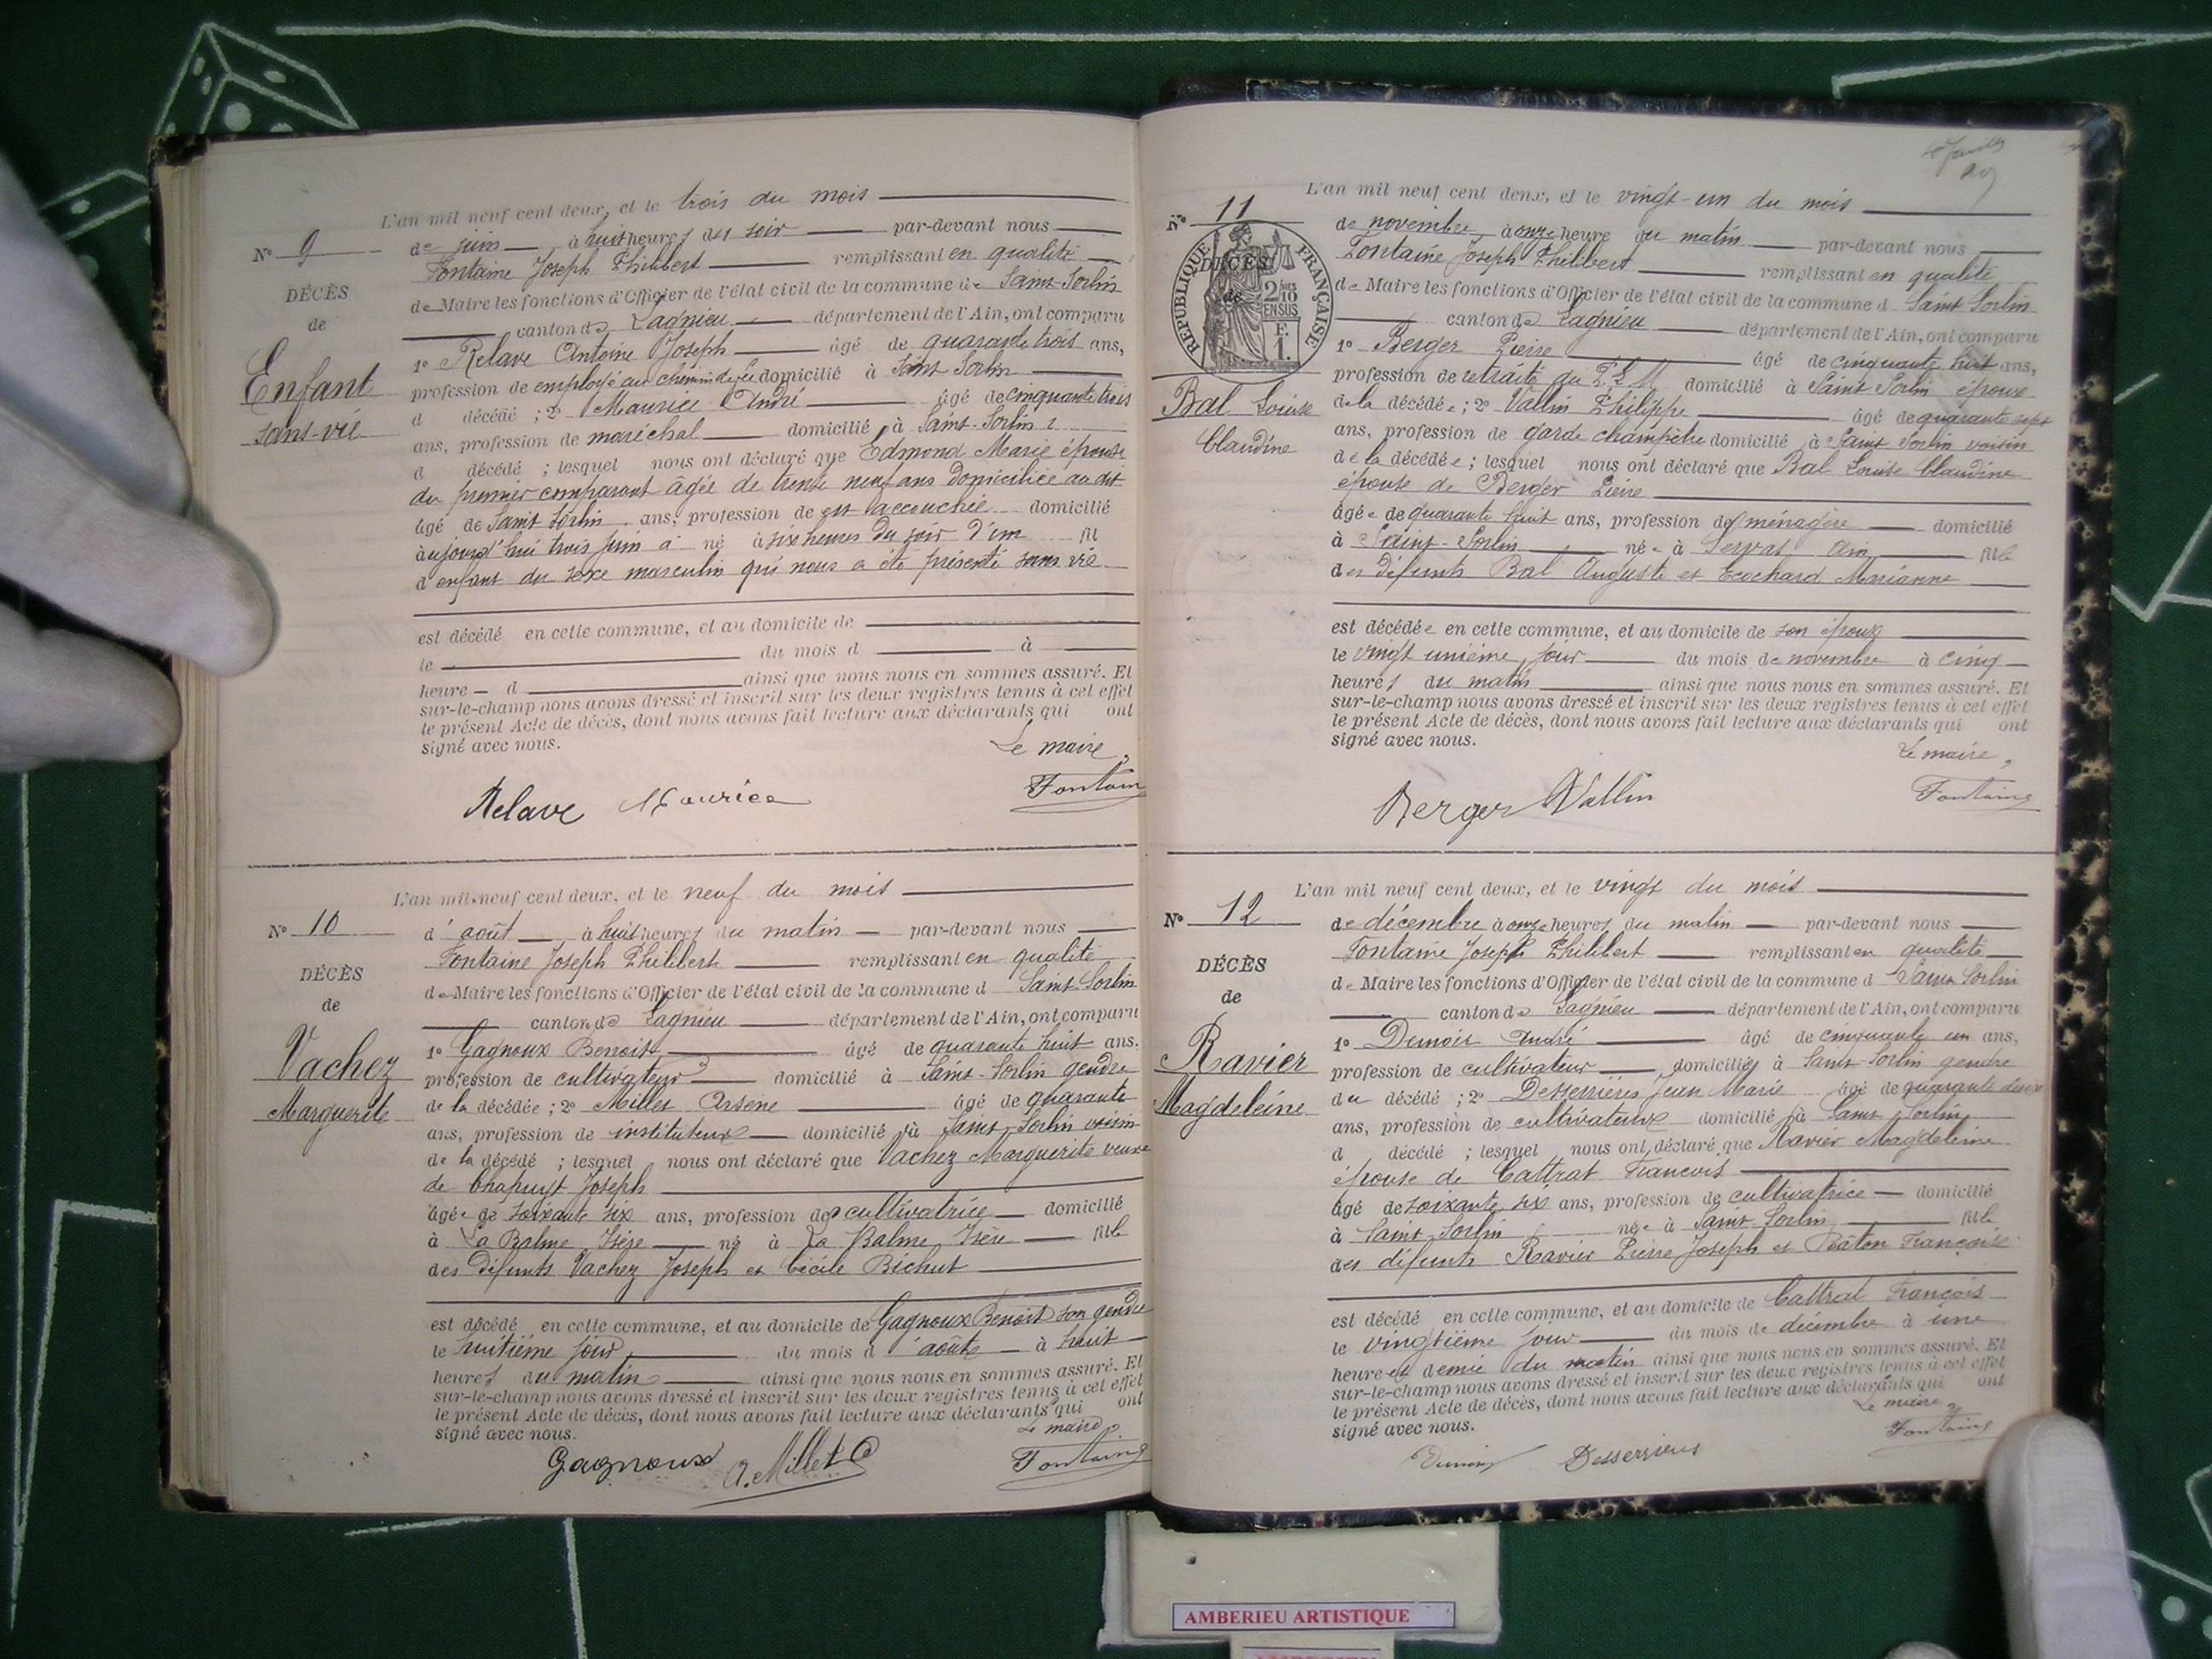 L'an mil neuf cent deux, et le trois du mois
No 9
de juin à huit heures du soir par-devant nous
Fontaine Joseph Philibert remplissant en qualité
DÉCÈS
de Maire les fonctions d'Officier de l'état civil de la commune de Saint-Sorlin
de
canton de Lagnieu département de l'Ain, ont comparu
1o Relave Antoine Joseph âgé de quarante trois ans,
Enfant
profession de employé au chemin de fer domicilié à Saint Sorlin
sans-vie
d décédé ; 2o Maurice André âgé de cinquante trois
ans, profession de maréchal domicilié à Saint-Sorlin
d décédé ; lesquel nous ont déclaré que Edmond Marie épouse
du premier comparant âgée de trente neuf ans domiciliée au dit
âgé de Saint Sorlin ans, profession de est accouchée domicilié
aujourd'hui trois juin à né à six heures du soir d'un fil
d'enfant du sexe masculin qui nous a été présenté sans vie
est décédé en cette commune, et au domicile de
le du mois d à
heure d ainsi que nous nous en sommes assuré. Et
sur-le-champ nous avons dressé et inscrit sur les deux registres tenus à cet effet
le présent Acte de décès, dont nous avons fait lecture aux déclarants qui ont
signé avec nous.
Le maire,
Relave Maurice Fontaine
L'an mil neuf cent deux, et le neuf du mois
No 10
d'août à huit heures du matin par-devant nous
Fontaine Joseph Philibert remplissant en qualité
DÉCÈS
de Maire les fonctions d'Officier de l'état civil de la commune d Saint Sorlin
de
canton de Lagnieu département de l'Ain, ont comparu
1o Gagnoux Benoit âgé de quarante huit ans.
Vachez
profession de cultivateur domicilié à Saint-Sorlin gendre
Marguerite
de la décédée ; 2o Millet Arsène âgé de quarante
ans, profession de instituteur domicilié à Saint Sorlin voisin
de la décédé ; lesquel nous ont déclaré que Vachez Marguerite veuve
de Chapuyt Joseph
âgée de soixante six ans, profession de cultivatrice domicilié
à La Balme Isère né à La Balme Isère fille
des défunts Vachez Joseph et Cécile Bichut
est décédé en cette commune, et au domicile de Gagnoux Benoit son gendre
le huitième jour du mois d'août à huit
heures du matin ainsi que nous nous en sommes assuré. Et
sur-le-champ nous avons dressé et inscrit sur les deux registres tenus à cet effet
le présent Acte de décès, dont nous avons fait lecture aux déclarants qui ont
signé avec nous.
Le maire,
Gagnoux A. Millet Fontaine
L'an mil neuf cent deux, et le vingt-un du mois
No 11
de novembre à onze heure du matin par-devant nous
Fontaine Joseph Philibert remplissant en qualité
RÉPUBLIQUE FRANÇAISE
DÉCÈS
2/10 EN SUS
F. 1.
de Maire les fonctions d'Officier de l'état civil de la commune d Saint Sorlin
de
canton de Lagnieu département de l'Ain, ont comparu
1o Berger Pierre âgé de cinquante huit ans,
profession de retraité du P.L.M. domicilié à Saint-Sorlin époux
Bal Louise
Claudine
de la décédée ; 2o Vallin Philippe âgé de quarante sept
ans, profession de garde champêtre domicilié à Saint Sorlin voisin
de la décédée ; lesquel nous ont déclaré que Bal Louise Claudine
épouse de Berger Pierre
âgée de quarante huit ans, profession de ménagère domicilié
à Saint-Sorlin née à Servas Ain fille
des défunts Bal Auguste et Ecochard Marianne
est décédée en cette commune, et au domicile de son époux
le vingt unième jour du mois de novembre à cinq
heures du matin ainsi que nous nous en sommes assuré. Et
sur-le-champ nous avons dressé et inscrit sur les deux registres tenus à cet effet
le présent Acte de décès, dont nous avons fait lecture aux déclarants qui ont
signé avec nous.
Le maire,
Berger Vallin Fontaine
L'an mil neuf cent deux, et le vingt du mois
No 12
de décembre à onze heures du matin par-devant nous
Fontaine Joseph Philibert remplissant en qualité
DÉCÈS
de Maire les fonctions d'Officier de l'état civil de la commune d Saint Sorlin
de
canton de Lagnieu département de l'Ain, ont comparu
1o Dunoir André âgé de cinquante un ans,
Ravier
profession de cultivateur domicilié à Saint-Sorlin gendre
Magdeleine
du décédé ; 2o Desserrières Jean Marie âgé de quarante deux
ans, profession de cultivateur domicilié à Saint Sorlin
d décédé ; lesquel nous ont déclaré que Ravier Magdeleine
épouse de Cattrat François
âgé de soixante six ans, profession de cultivatrice domicilié
à Saint Sorlin née à Saint-Sorlin fille
des défunts Ravier Pierre Joseph et Bâton Françoise
est décédé en cette commune, et au domicile de Cattrat François
le vingtième jour du mois de décembre à une
heure et demie du matin ainsi que nous nous en sommes assuré. Et
sur-le-champ nous avons dressé et inscrit sur les deux registres tenus à cet effet
le présent Acte de décès, dont nous avons fait lecture aux déclarants qui ont
signé avec nous.
Le maire,
Desserrières Fontaine
AMBERIEU ARTISTIQUE